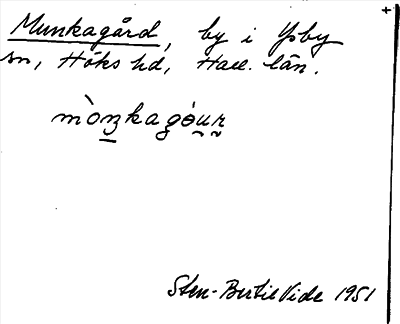 Munkagård, by i Ysby
sn, Höks hd, Hall. län.
mònkagóur
Sten-Bertil Vide 1951